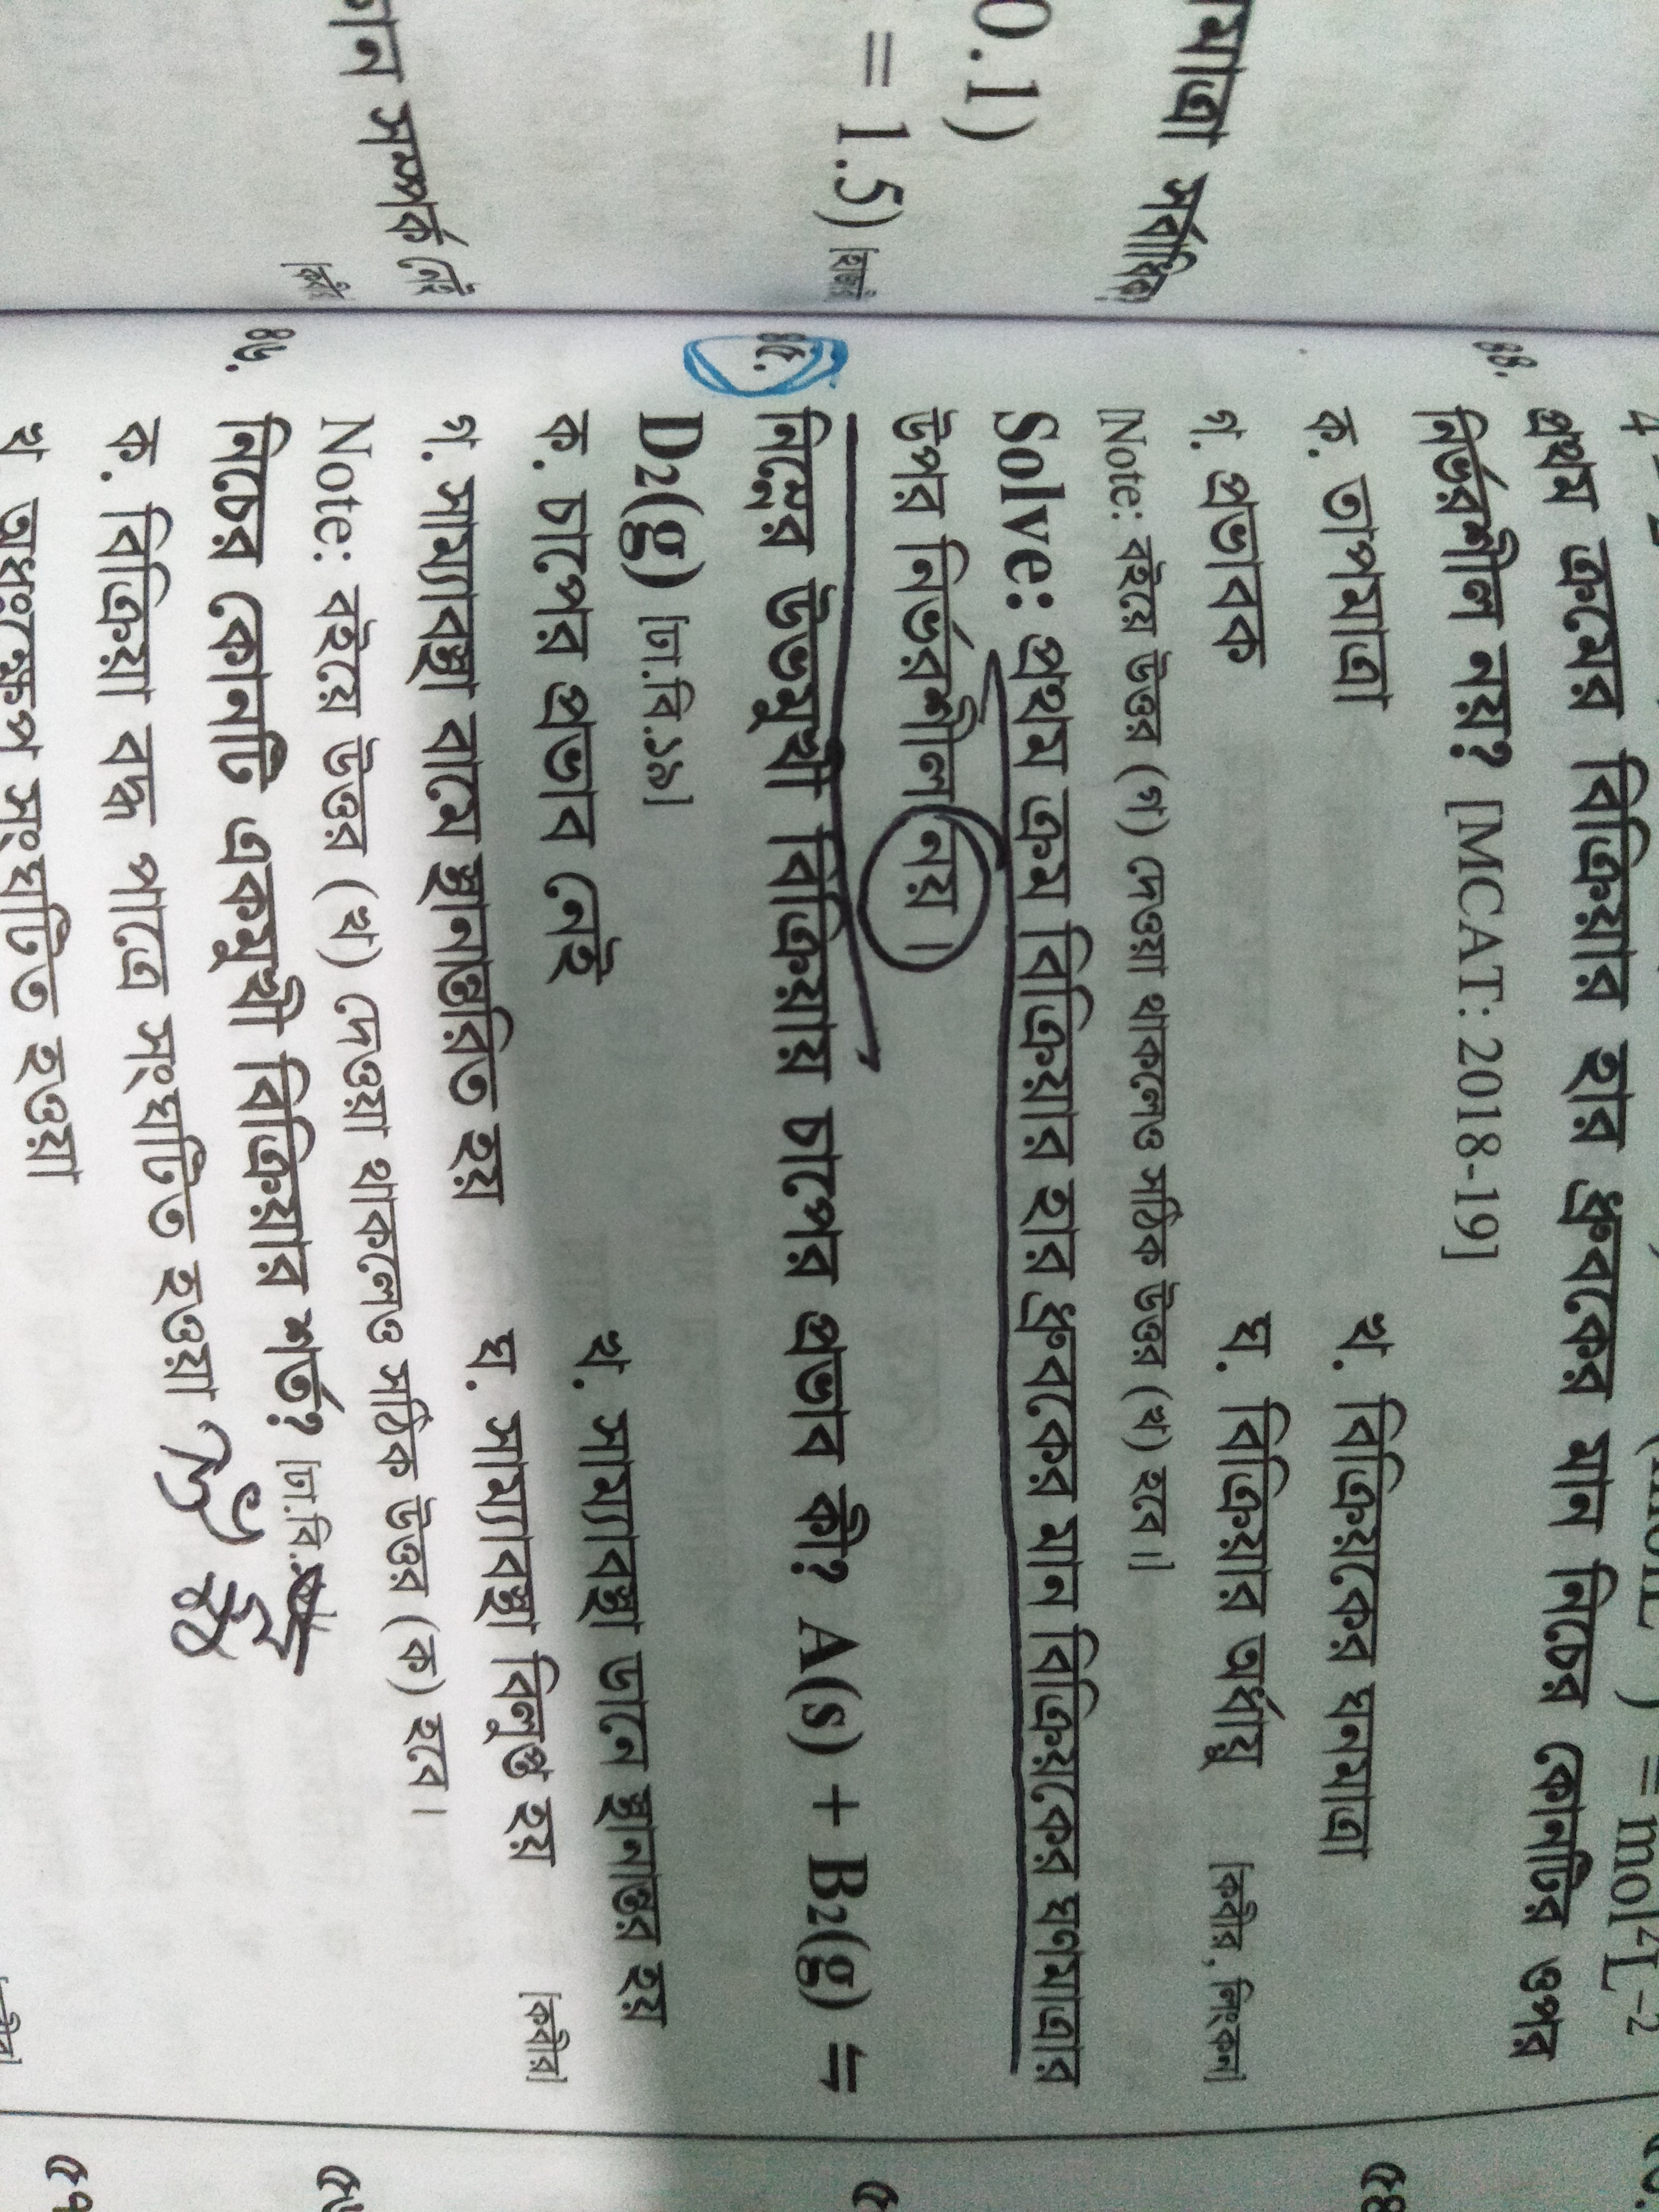 মাত্রা সর্বাধিক
0.1)
= 1.5)
মান সম্পর্ক নেই
৪৪. প্রথম ক্রমের বিক্রিয়ার হার ধ্রুবকের মান নিচের কোনটির ওপর
নির্ভরশীল নয়? [MCAT: 2018-19]
ক. তাপমাত্রা খ. বিক্রিয়কের ঘনমাত্রা
গ. প্রভাবক ঘ. বিক্রিয়ার অর্ধায়ু [কবীর, লিংকন]
[Note: বইয়ে উত্তর (গ) দেওয়া থাকলেও সঠিক উত্তর (খ) হবে।]
Solve: প্রথম ক্রম বিক্রিয়ার হার ধ্রুবকের মান বিক্রিয়কের ঘণমাত্রার
উপর নির্ভরশীল নয়।
৪৫. নিম্নের উভমুখী বিক্রিয়ায় চাপের প্রভাব কী? A(s) + B₂(g) ⇋
D₂(g) [ঢা.বি.১৯]
ক. চাপের প্রভাব নেই খ. সাম্যাবস্থা ডানে স্থানান্তর হয়
গ. সাম্যাবস্থা বামে স্থানান্তরিত হয় ঘ. সাম্যাবস্থা বিলুপ্ত হয় [কবীর]
Note: বইয়ে উত্তর (খ) দেওয়া থাকলেও সঠিক উত্তর (ক) হবে।
৪৬. নিচের কোনটি একমুখী বিক্রিয়ার শর্ত? [ঢা.বি.
ক. বিক্রিয়া বদ্ধ পাত্রে সংঘটিত হওয়া
খ অধঃক্ষেপ সংঘটিত হওয়া
৫৪